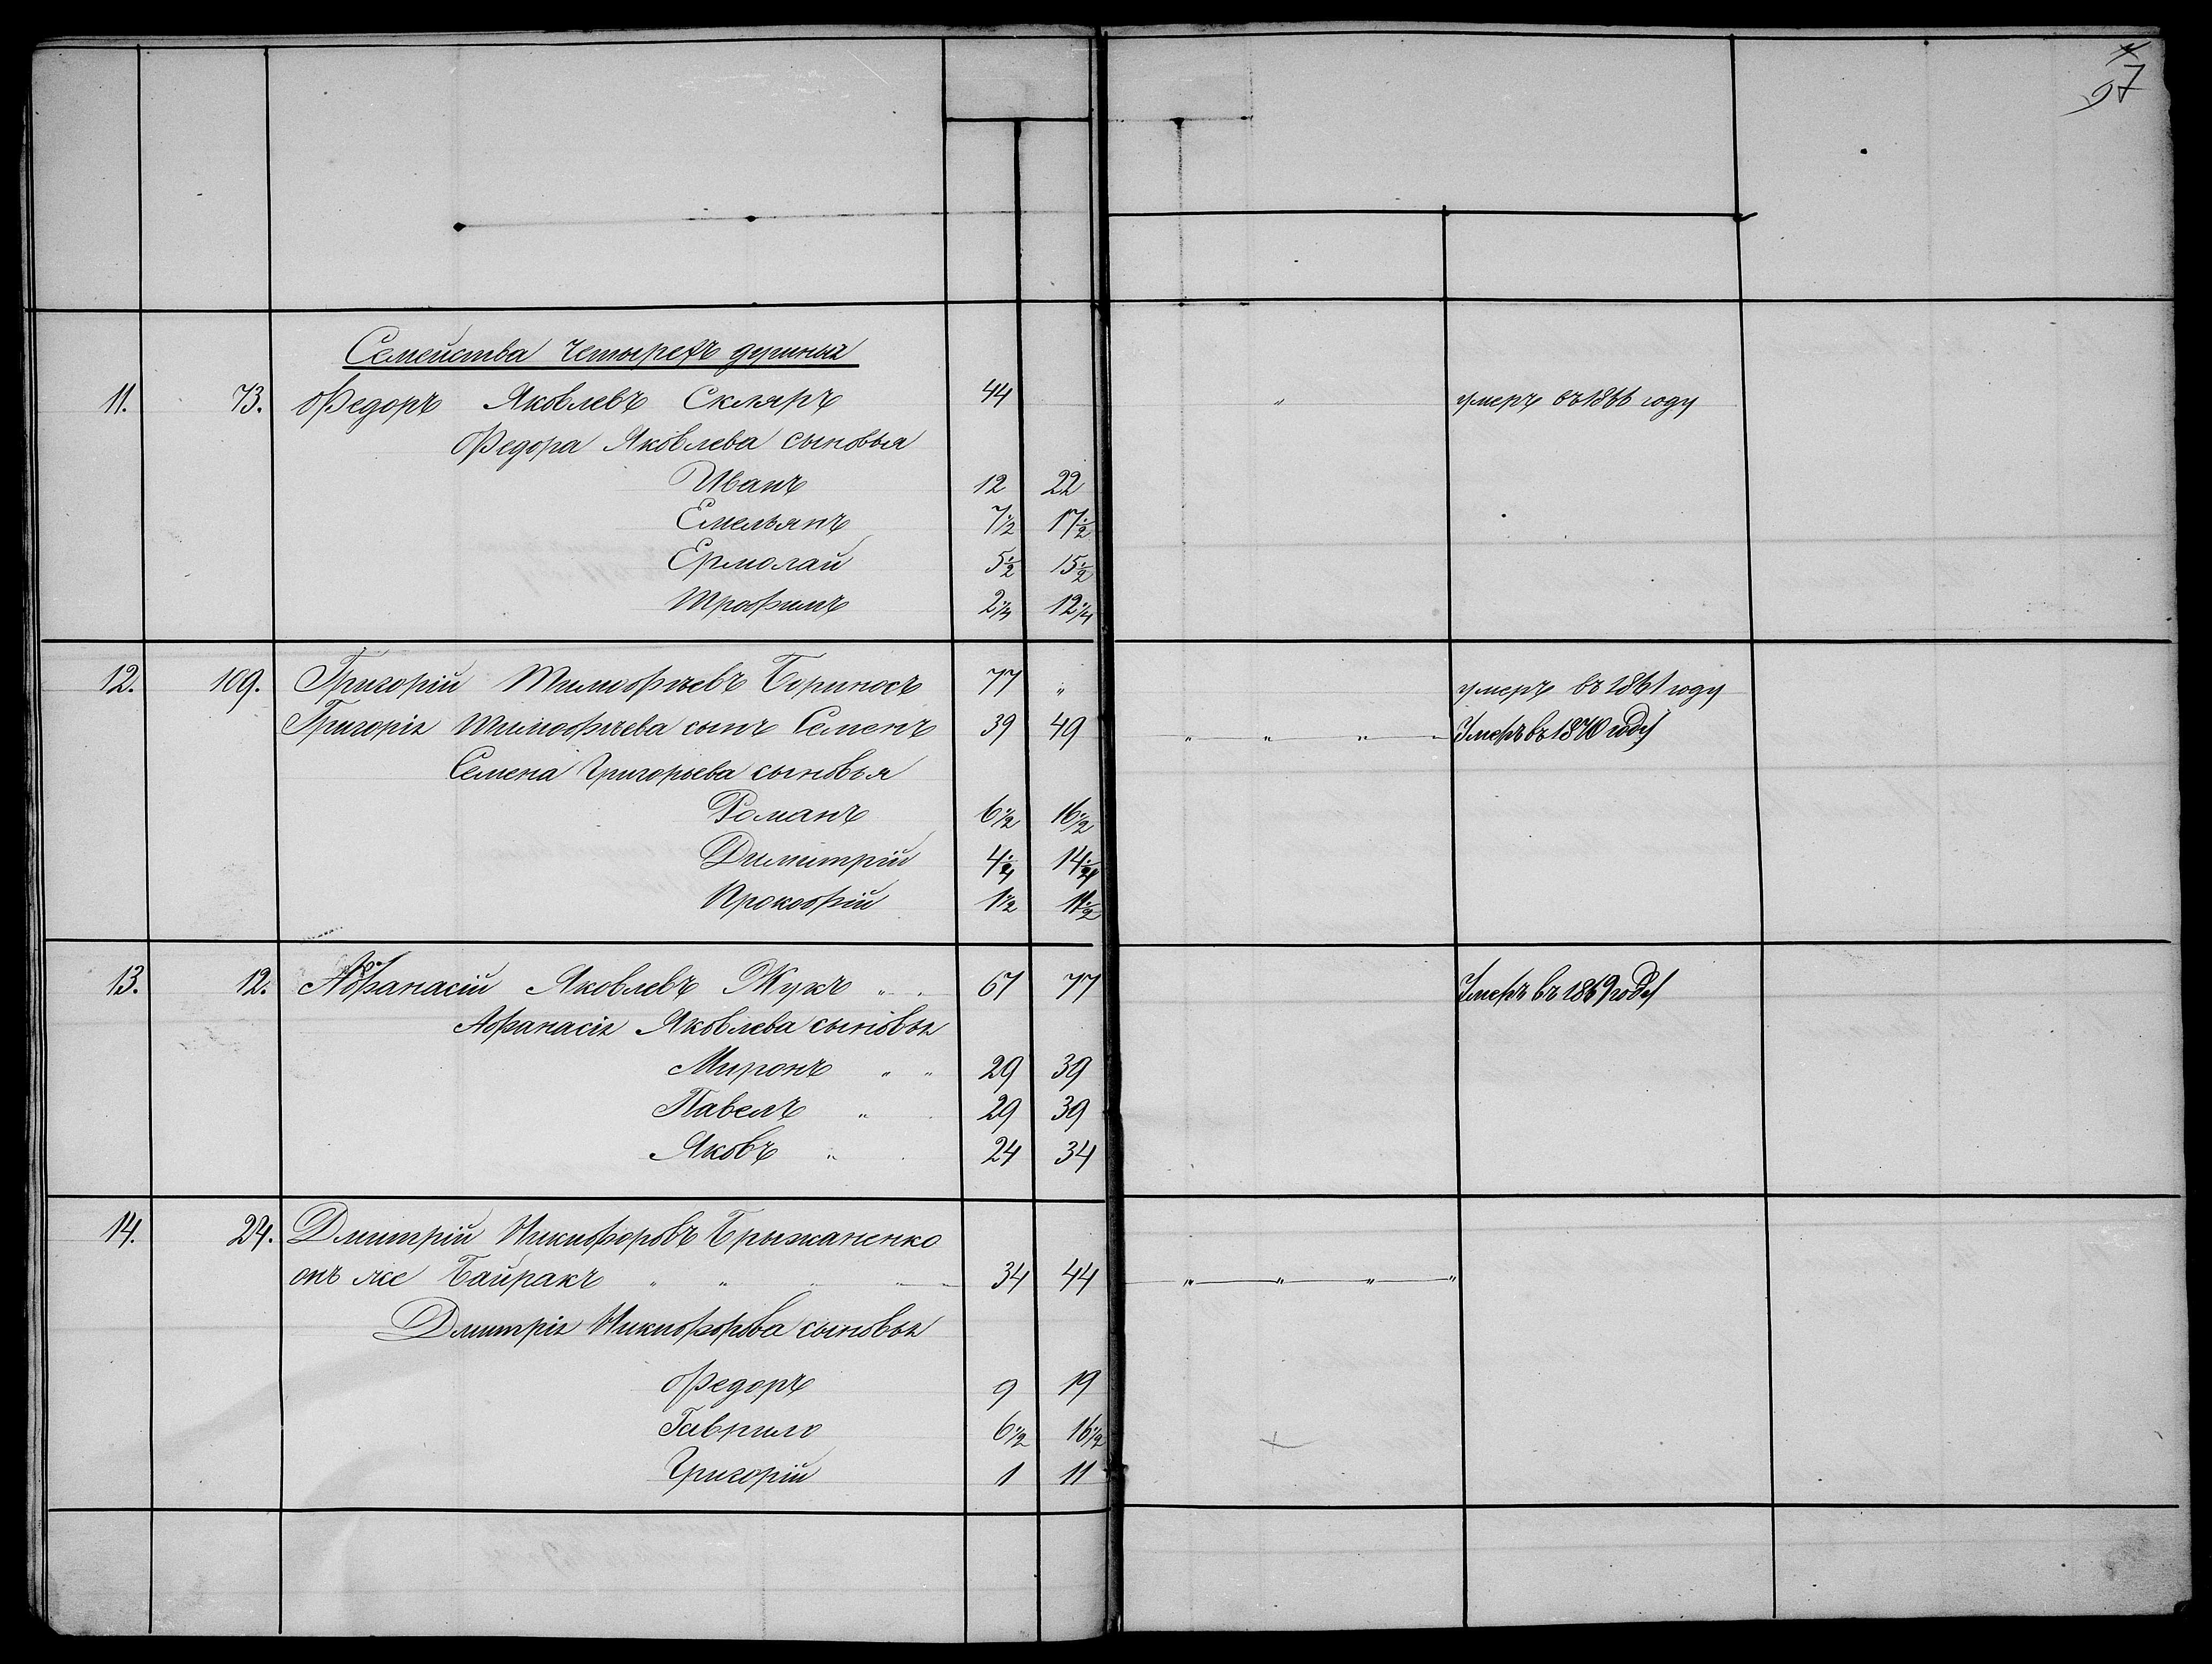 97
Семейства четырехъ душныя
11. 73. Федоръ Яковлевъ Скляръ 44 " умеръ въ 1866 году
Федора Яковлева сыновья
Иванъ 12 22
Емельянъ 7 1/2 17 1/2
Ермолай 5 1/2 15 1/2
Трофимъ 2 1/4 12 1/4
12. 109. Григорій Тимофѣевъ Бориносъ 77 " умеръ въ 1861 году
Григорія Тимофѣева сынъ Семенъ 39 49 " " " Умеръ въ 1870 году
Семена Григорьева сыновья
Романъ 6 1/2 16 1/2
Димитрій 4 1/2 14 1/2
Прокофій 1 1/2 11 1/2
13. 12. Афанасій Яковлевъ Жукъ " " 67 77 Умеръ въ 1869 году
Афанасія Яковлева сыновья
Миронъ " " 29 39
Павелъ " 29 39
Яковъ " 24 34
14. 24. Дмитрій Никифоровъ Брыжаненко
онъ же Байракъ " " " " 34 44 " " " "
Дмитрія Никифорова сыновья
Федоръ 9 19
Гаврило 6 1/2 16 1/2
Григорій 1 11